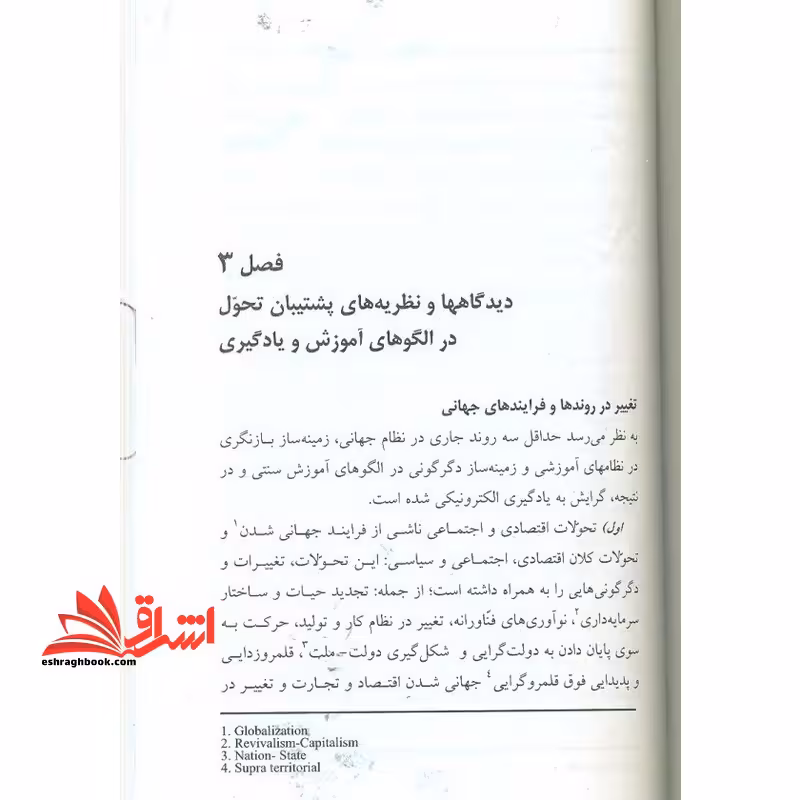 فصل ۳
دیدگاهها و نظریه‌های پشتیبان تحوّل
در الگوهای آموزش و یادگیری
تغییر در روندها و فرایندهای جهانی
به نظر می‌رسد حداقل سه روند جاری در نظام جهانی، زمینه‌ساز بازنگری
در نظامهای آموزشی و زمینه‌ساز دگرگونی در الگوهای آموزش سنتی و در
نتیجه، گرایش به یادگیری الکترونیکی شده است.
اول) تحوّلات اقتصادی و اجتماعی ناشی از فرایند جهانی شدن۱ و
تحوّلات کلان اقتصادی، اجتماعی و سیاسی: این تحوّلات، تغییرات و
دگرگونی‌هایی را به همراه داشته است؛ از جمله: تجدید حیات و ساختار
سرمایه‌داری۲، نوآوری‌های فنّاورانه، تغییر در نظام کار و تولید، حرکت به
سوی پایان دادن به دولت‌گرایی و شکل‌گیری دولت–ملت۳، قلمروزدایی
و پدیدایی فوق قلمروگرایی۴ جهانی شدنِ اقتصاد و تجارت و تغییر در
1. Globalization
2. Revivalism-Capitalism
3. Nation- State
4. Supra territorial
اشراق
eshraghbook.com